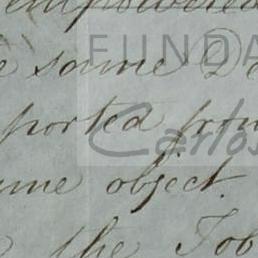 empowered
same D
ported from
ame object.
the Tob
FUNDA
Carlos